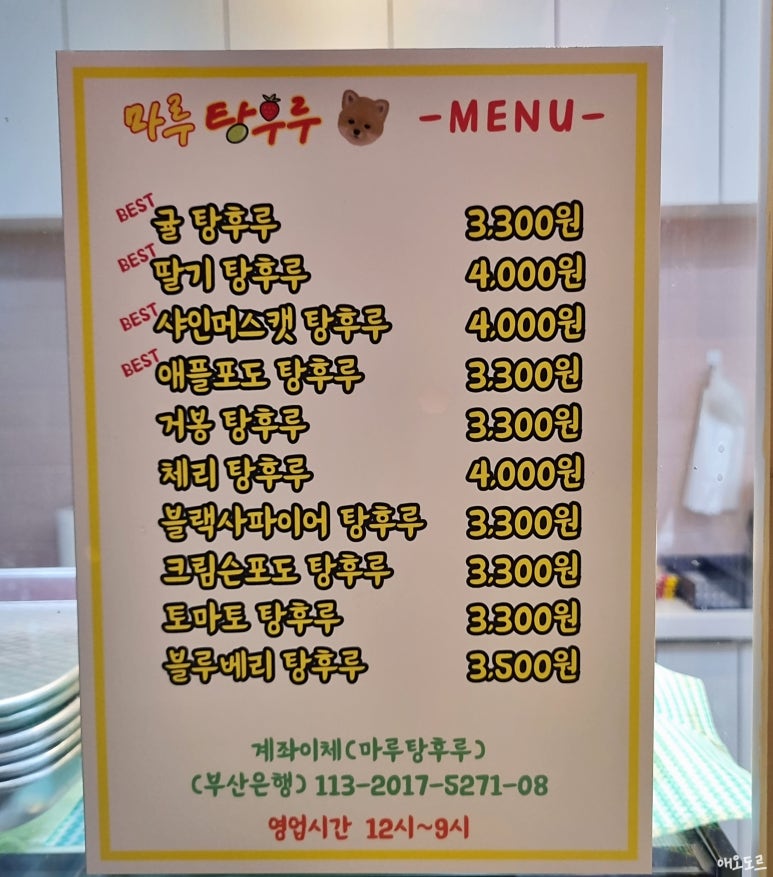 마루 탕후루 -MENU-
BEST 귤 탕후루 3,300원
BEST 딸기 탕후루 4,000원
BEST 샤인머스캣 탕후루 4,000원
BEST 애플포도 탕후루 3,300원
거봉 탕후루 3,300원
체리 탕후루 4,000원
블랙사파이어 탕후루 3,300원
크림슨포도 탕후루 3,300원
토마토 탕후루 3,300원
블루베리 탕후루 3,500원
계좌이체(마루탕후루)
(부산은행) 113-2017-5271-08
영업시간 12시~9시
애오도르